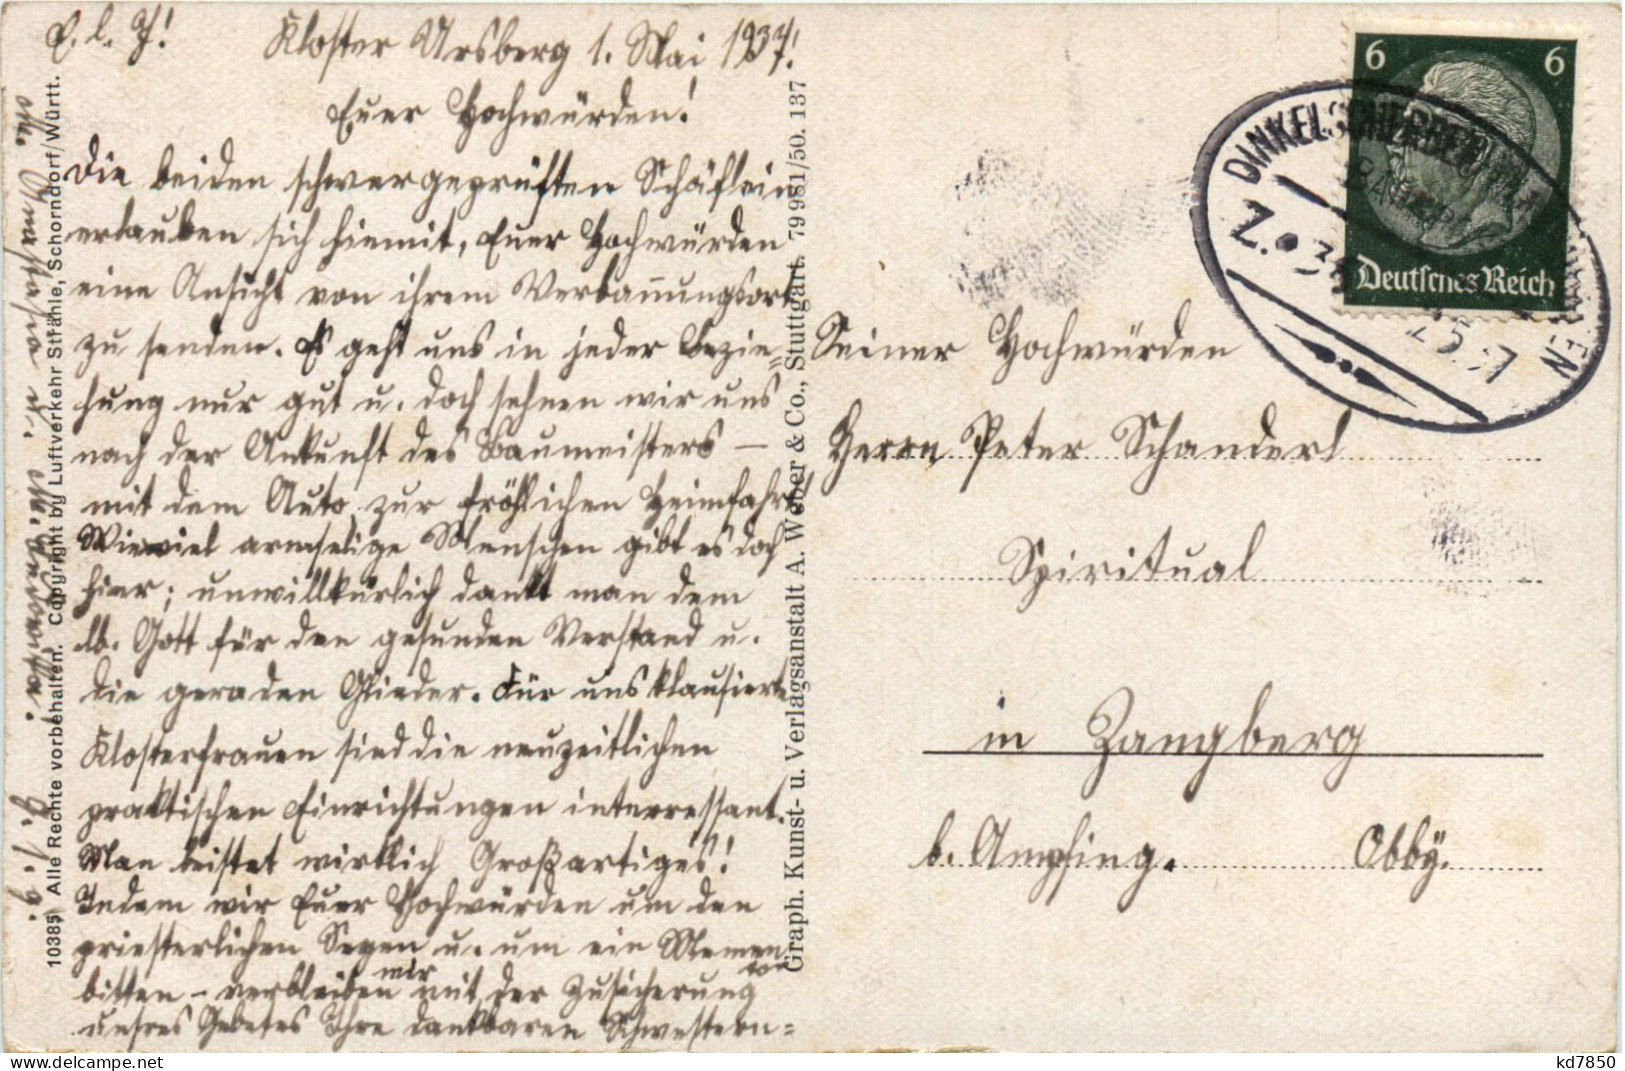 G. l. J!
Kloster Ursberg 1. Mai 1937!
Euer Hochwürden!
Die beiden schwergeprüften Schäflein
erlauben sich hiemit, Euer Hochwürden
eine Ansicht von ihrem Verbannungsort
zu senden. Es geht uns in jeder Bezie=
hung nur gut u. doch sehnen wir uns
nach der Ankunft des Baumeisters —
mit dem Auto zur fröhlichen Heimfahrt.
Wieviel armselige Menschen gibt es doch
hier; unwillkürlich dankt man dem
lb. Gott für den gesunden Verstand u.
die geraden Glieder. Für uns klausierte
Klosterfrauen sind die neuzeitlichen
praktischen Einrichtungen interressant.
Man leistet wirklich Großartiges!
Indem wir Euer Hochwürden um den
priesterlichen Segen u. um ein Memento
bitten – verbleiben wir mit der Zusicherung
unsres Gebetes Ihre dankbaren Schwestern=
M. M.
g. J. g.
10385 Alle Rechte vorbehalten. Copyright by Luftverkehr Strähle, Schorndorf/Württ.
Graph. Kunst- u. Verlagsanstalt A. Weber & Co., Stuttgart. 79 981/50. 137
6 6
Deutsches Reich
DINKELSCHERBEN
BAHNPOST
Z.
Seiner Hochwürden
Herrn Peter Schanderl
Spiritual
in Zangberg
b. Ampfing. Obby.
delcampe.net
kd7850